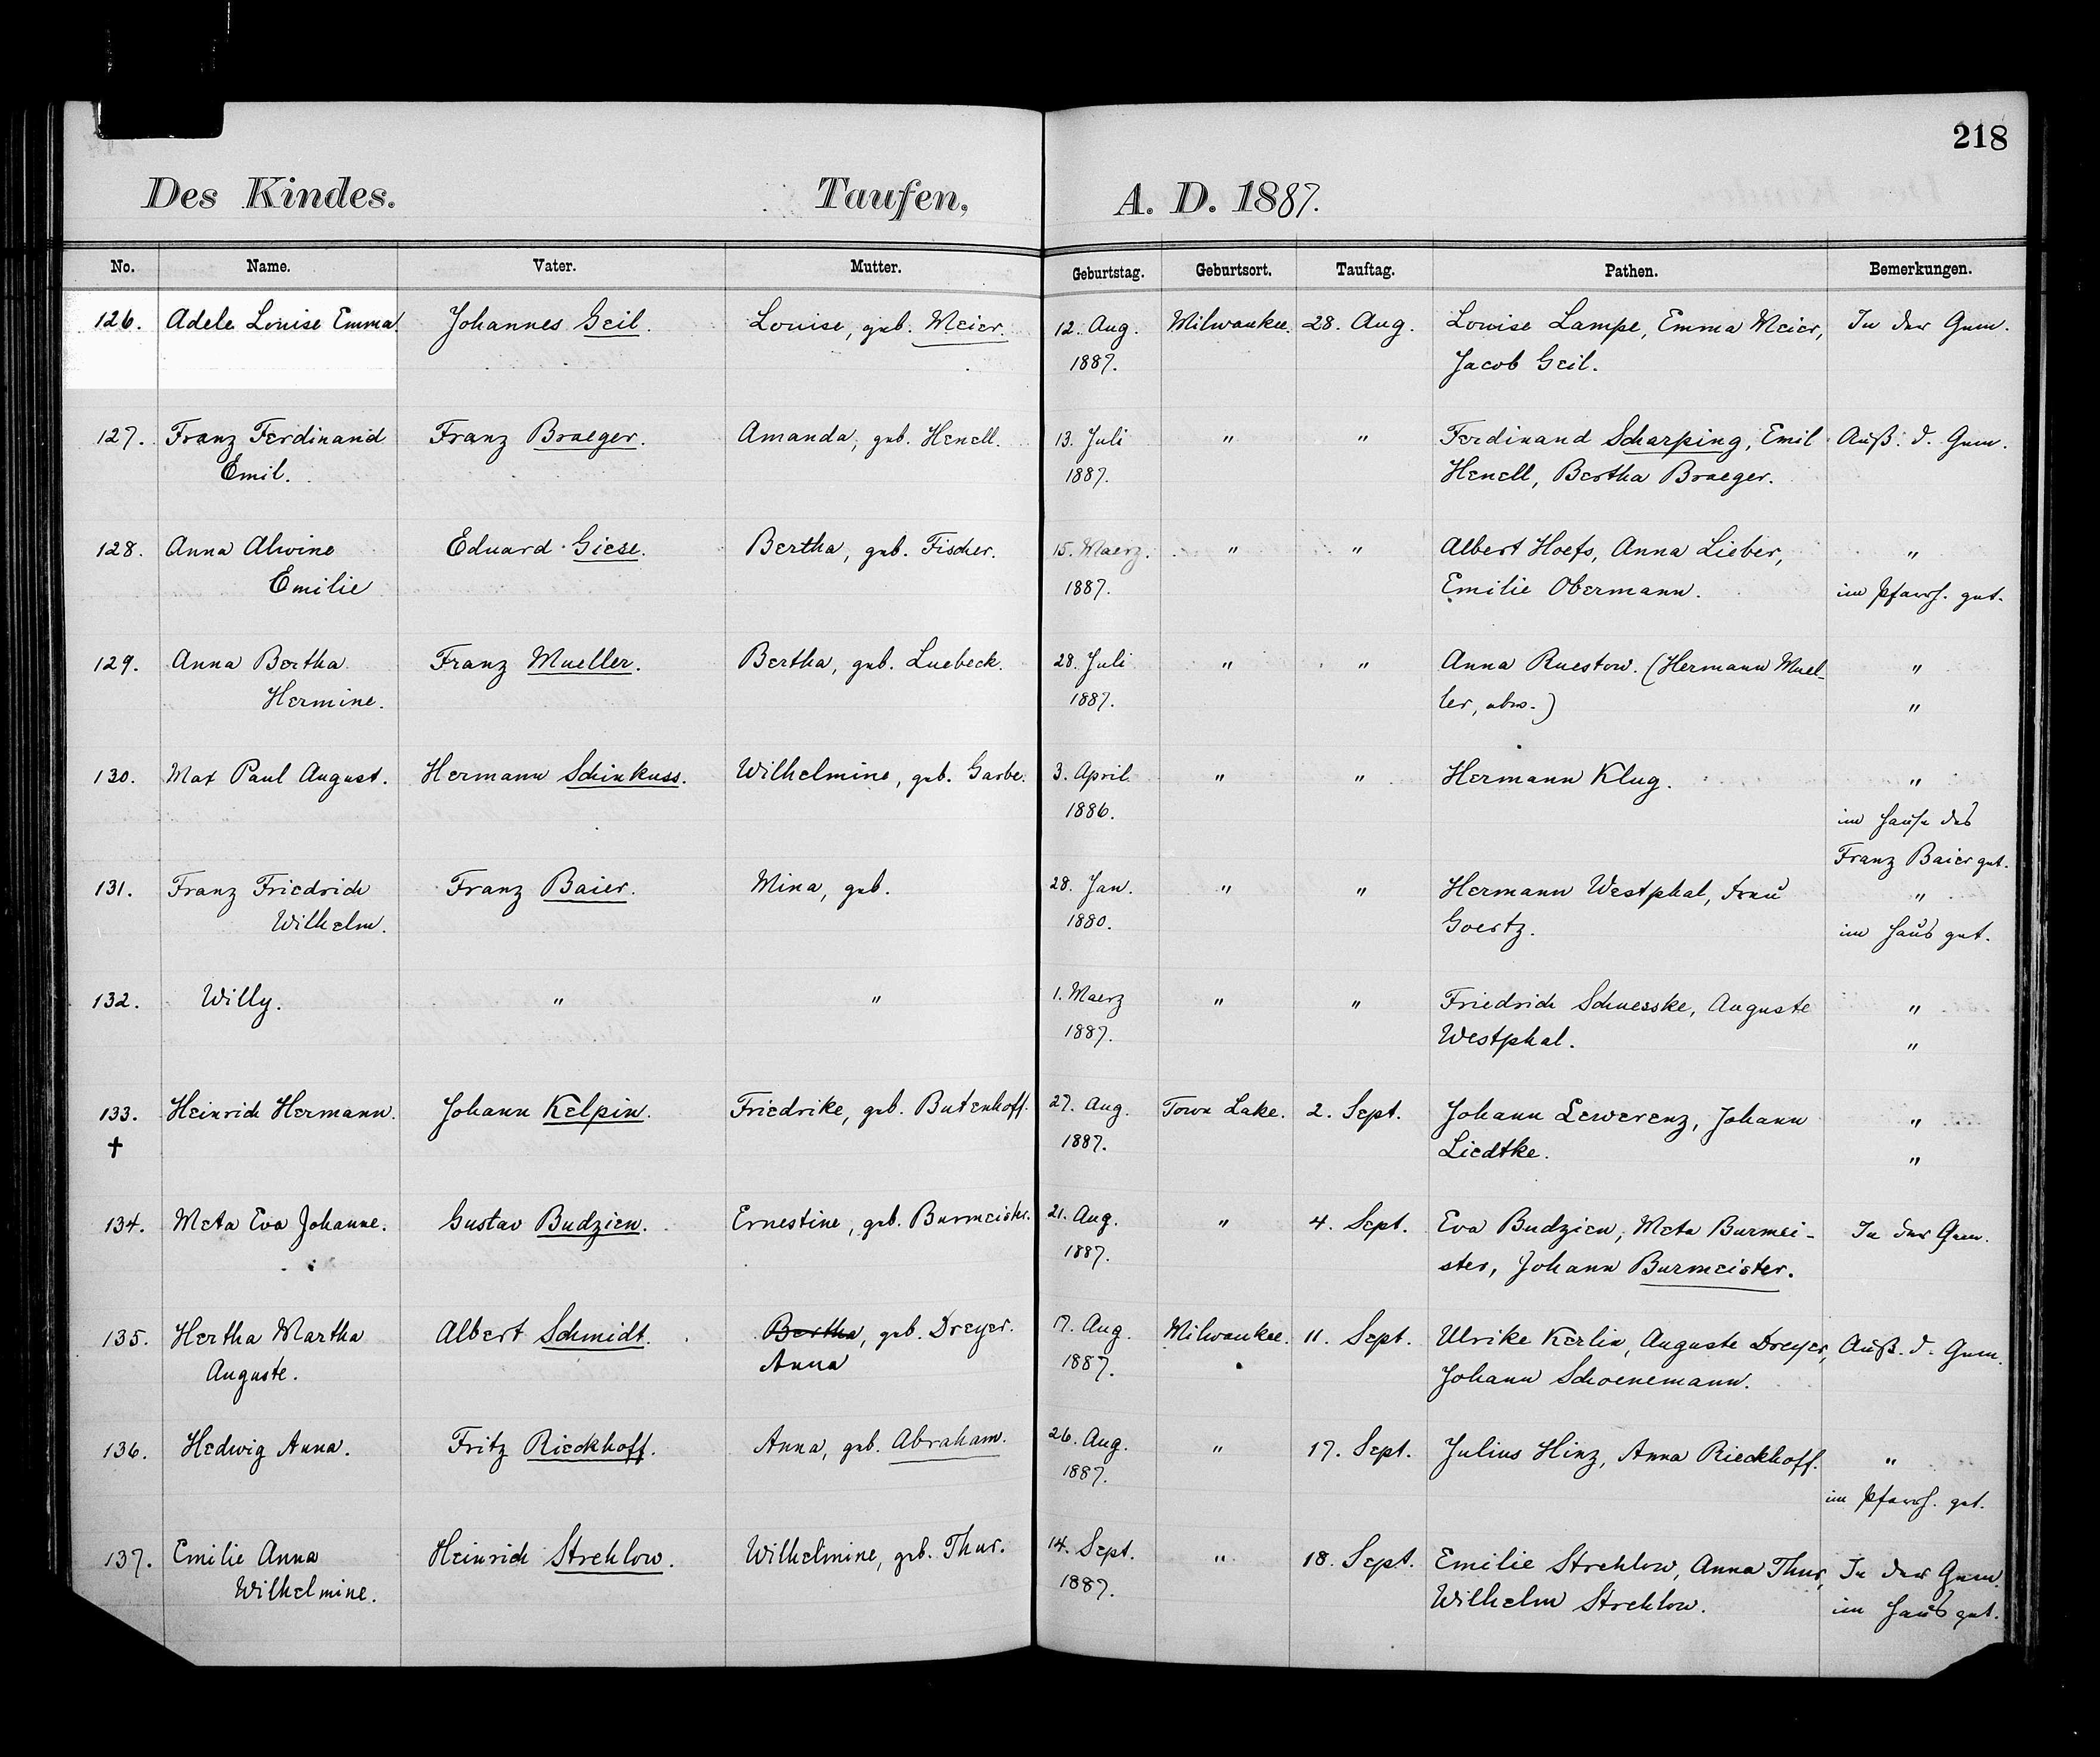 218
Des Kindes. Taufen, A. D. 1887.
No. Name. Vater. Mutter. Geburtstag. Geburtsort. Tauftag. Pathen. Bemerkungen.
126. Adele Louise Emma Johannes Geil. Louise, geb. Meier. 12. Aug. Milwaukee. 28. Aug. Louise Lampe, Emma Meier, In der Gem.
1887. Jacob Geil.
127. Franz Ferdinand Franz Braeger. Amanda, geb. Henell. 13. Juli " " Ferdinand Scharping, Emil Auß. d. Gem.
Emil. 1887. Henell, Bertha Braeger.
128. Anna Alwine Eduard Giese. Bertha, geb. Fischer. 15. Maerz. " " Albert Hoefs, Anna Lieber, "
Emilie 1887. Emilie Obermann. im Pfarrh. get.
129. Anna Bertha Franz Mueller. Bertha, geb. Luebeck. 28. Juli " " Anna Ruestow. (Hermann Muel- "
Hermine. 1887. ler, abw.) "
130. Max Paul August. Hermann Schinkuss. Wilhelmine, geb. Garbe. 3. April " " Hermann Klug. "
1886. im Hause des
Franz Baier get.
131. Franz Friedrich Franz Baier. Mina, geb. 28. Jan. " " Hermann Westphal, Frau "
Wilhelm. 1880. Goertz. im Haus get.
132. Willy. " " 1. Maerz " " Friedrich Schuesske, Auguste "
1887. Westphal. "
133. Heinrich Hermann. Johann Kelpin. Friedrike, geb. Butenhoff. 27. Aug. Town Lake. 2. Sept. Johann Lewerenz, Johann "
✝ 1887. Liedtke. "
134. Meta Eva Johanne. Gustav Budzien. Ernestine, geb. Burmeister. 21. Aug. " 4. Sept. Eva Budzien, Meta Burmei- In der Gem.
1887. ster, Johann Burmeister.
135. Hertha Martha Albert Schmidt. Bertha, geb. Dreyer. 17. Aug. Milwaukee. 11. Sept. Ulrike Kerlin, Auguste Dreyer, Auß. d. Gem.
Auguste. Anna 1887. Johann Schoenemann.
136. Hedwig Anna. Fritz Rieckhoff. Anna, geb. Abraham. 26. Aug. " 17. Sept. Julius Hinz, Anna Rieckhoff. "
1887. im Pfarrh. get.
137. Emilie Anna Heinrich Strehlow. Wilhelmine, geb. Thur. 14. Sept. " 18. Sept. Emilie Strehlow, Anna Thur, In der Gem.
Wilhelmine. 1887. Wilhelm Strehlow. im Haus get.